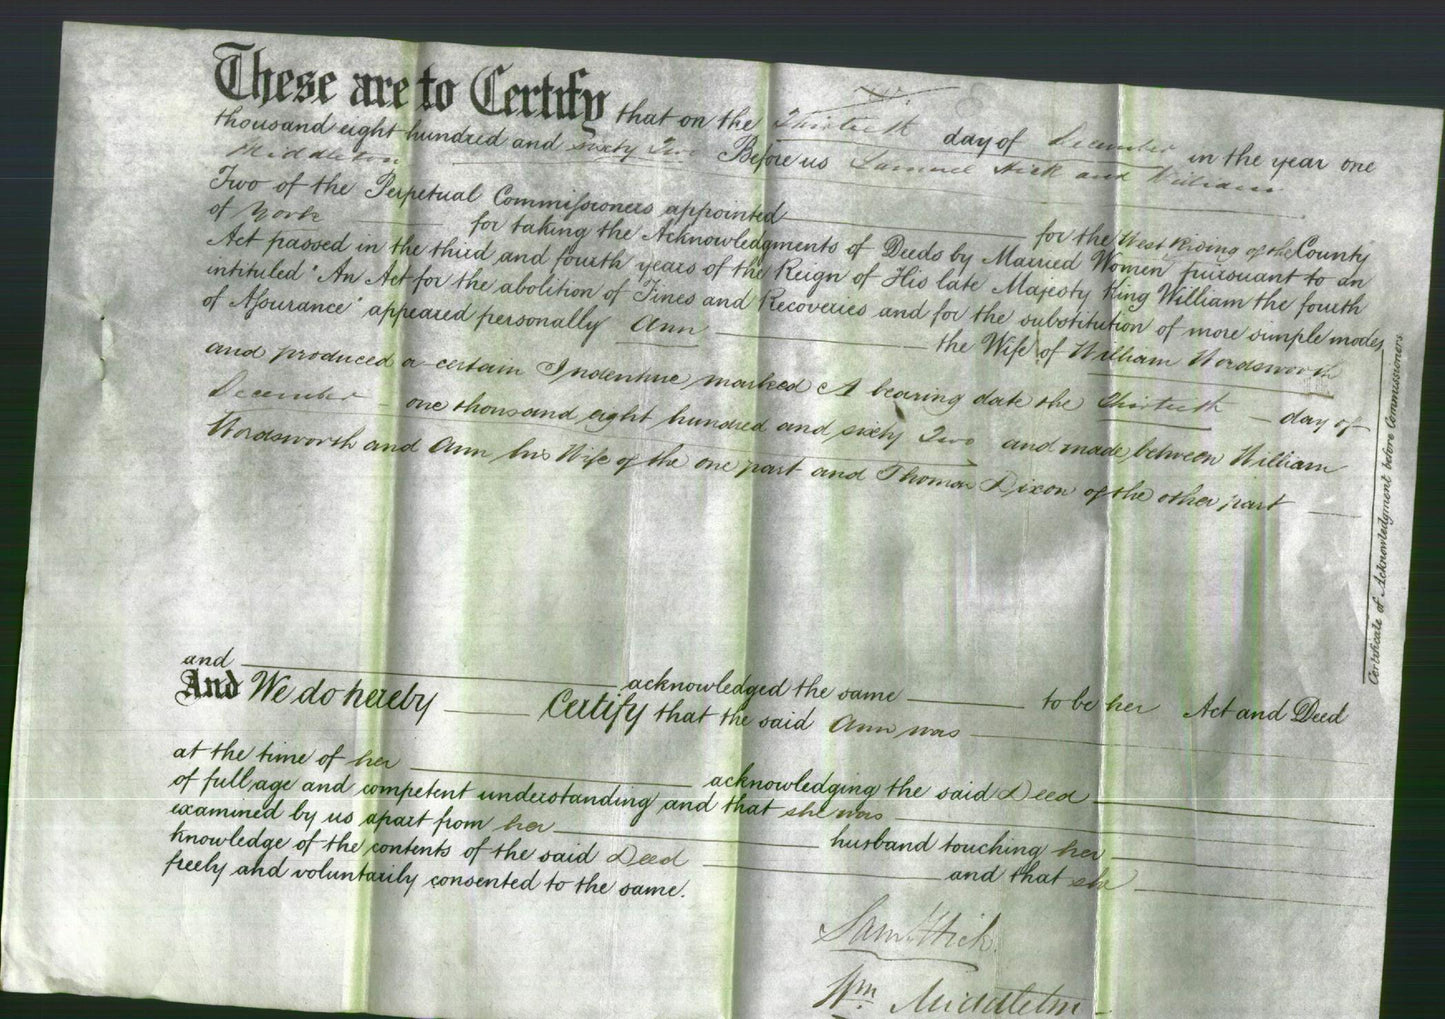 These are to Certify that on the Thirtieth day of December in the year one
thousand eight hundred and sixty Two Before us Samuel Hick and William
Middleton
Two of the Perpetual Commissioners appointed for the West Riding of the County
of York for taking the Acknowledgments of Deeds by Married Women pursuant to an
Act passed in the third and fourth years of the Reign of His late Majesty King William the fourth
intituled "An Act for the abolition of Fines and Recoveries and for the substitution of more simple modes
of Assurance" appeared personally Ann the Wife of William Wordsworth
and produced a certain Indenture marked A bearing date the Thirtieth day of
December one thousand eight hundred and sixty Two and made between William
Wordsworth and Ann his Wife of the one part and Thomas Dixon of the other part
and acknowledged the same to be her Act and Deed
And We do hereby Certify that the said Ann was
at the time of her acknowledging the said Deed
of full age and competent understanding and that she was
examined by us apart from her husband touching her
knowledge of the contents of the said Deed and that she
freely and voluntarily consented to the same.
Saml. Hick
Wm. Middleton
Certificate of Acknowledgment before Commissioners.